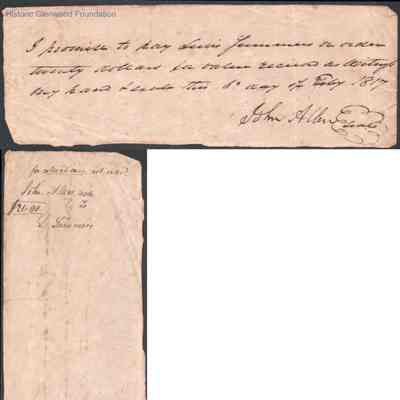 Historic Glenwood Foundation
I promise to pay Lewis Summers or order
twenty dollars for value received as Witness
my hand & seal this 6th day of Feby 1817
John Allen Seal
John Allen note
To
L Summers